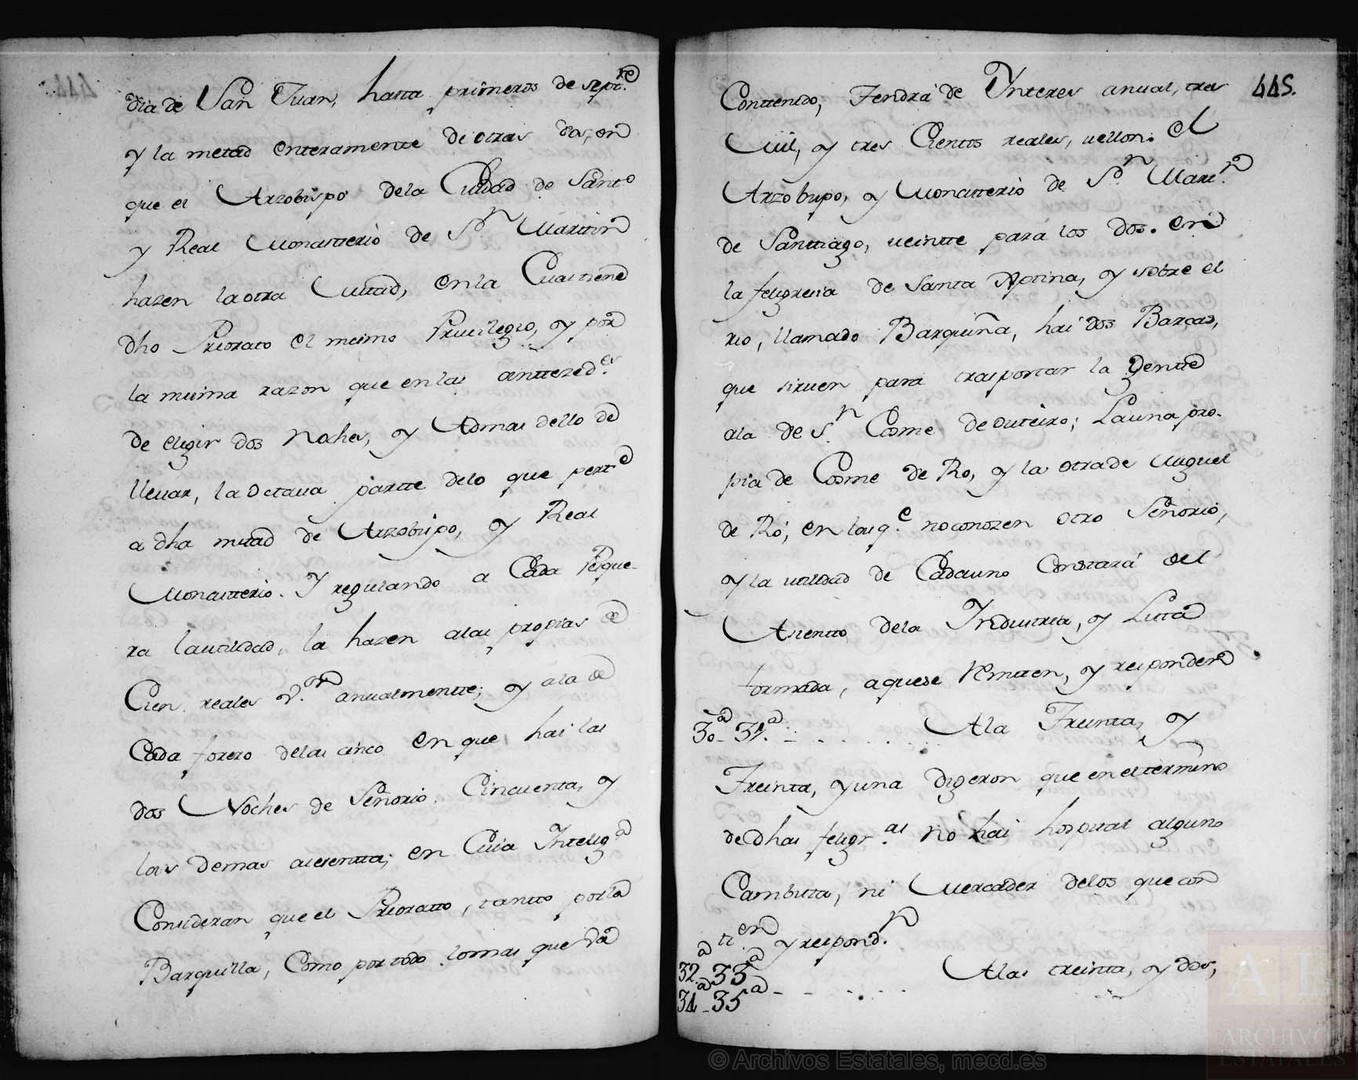 dia de San Juan, hasta primeros de sept.re
y la metad enteramente de otras dos, en
que el Arzobispo dela Ciudad de Santo
y Real Monasterio de Sn Martin
hazen la otra Mitad, en la Cual tiene
dho Priorato el mismo Privilegio, y por
la misma razon que en las anttezed.es
de eligir dos Noches, y Ademas dello de
llevar, la Octava partte delo que pert.e
a dha mitad de Arzobispo, y Real
Monasterio. Y regulando a Cada Pesque-
ra la utilidad, la hazen alas propias de
Cien reales v.on anualmentte; y ala de
Cada forero delas cinco en que hai las
dos Noches de Señorio, Cincuenta, y
las demas asesentta; en Cuia Intelig.a
Consideran que el Prioratto, tantto por la
Barquilla, Como por todo lo mas que va
445.
Conttenido, Tendrá de Ynteres anual, tres
Mil, y tres Cientos reales, vellon. el
Arzobispo, y Monasterio de S.n Martn
de Santtiago, veintte para los dos. en
la feligresia de Santa Xptina, y sobre el
rio, llamado Barquiña, hai dos Barcas,
que sirven para trasportar la Gente
ala de S.n Cosme de outeiro; La una pro-
pia de Cosme de Ró, y la otra de Miguel
de Ró; en las q.e no conozen otro Señorio,
y la utilidad de Cada uno Constará del
Asientto dela Yndustria, y Lista
formada, a que se Remiten, y responden
30.a 31.a - - . . . . . . Ala Treinta, y
Treinta, y una digeron que en el término
de dhas feligr.as no hai hospital alguno
Cambista, ni Mercader delos que con
ti.en y respond.n
32.a 33.a
34.a 35.a - - . . . . . Alas treinta, y dos,
© Archivos Estatales, mecd.es
AE
ARCHIVOS
ESTATALES